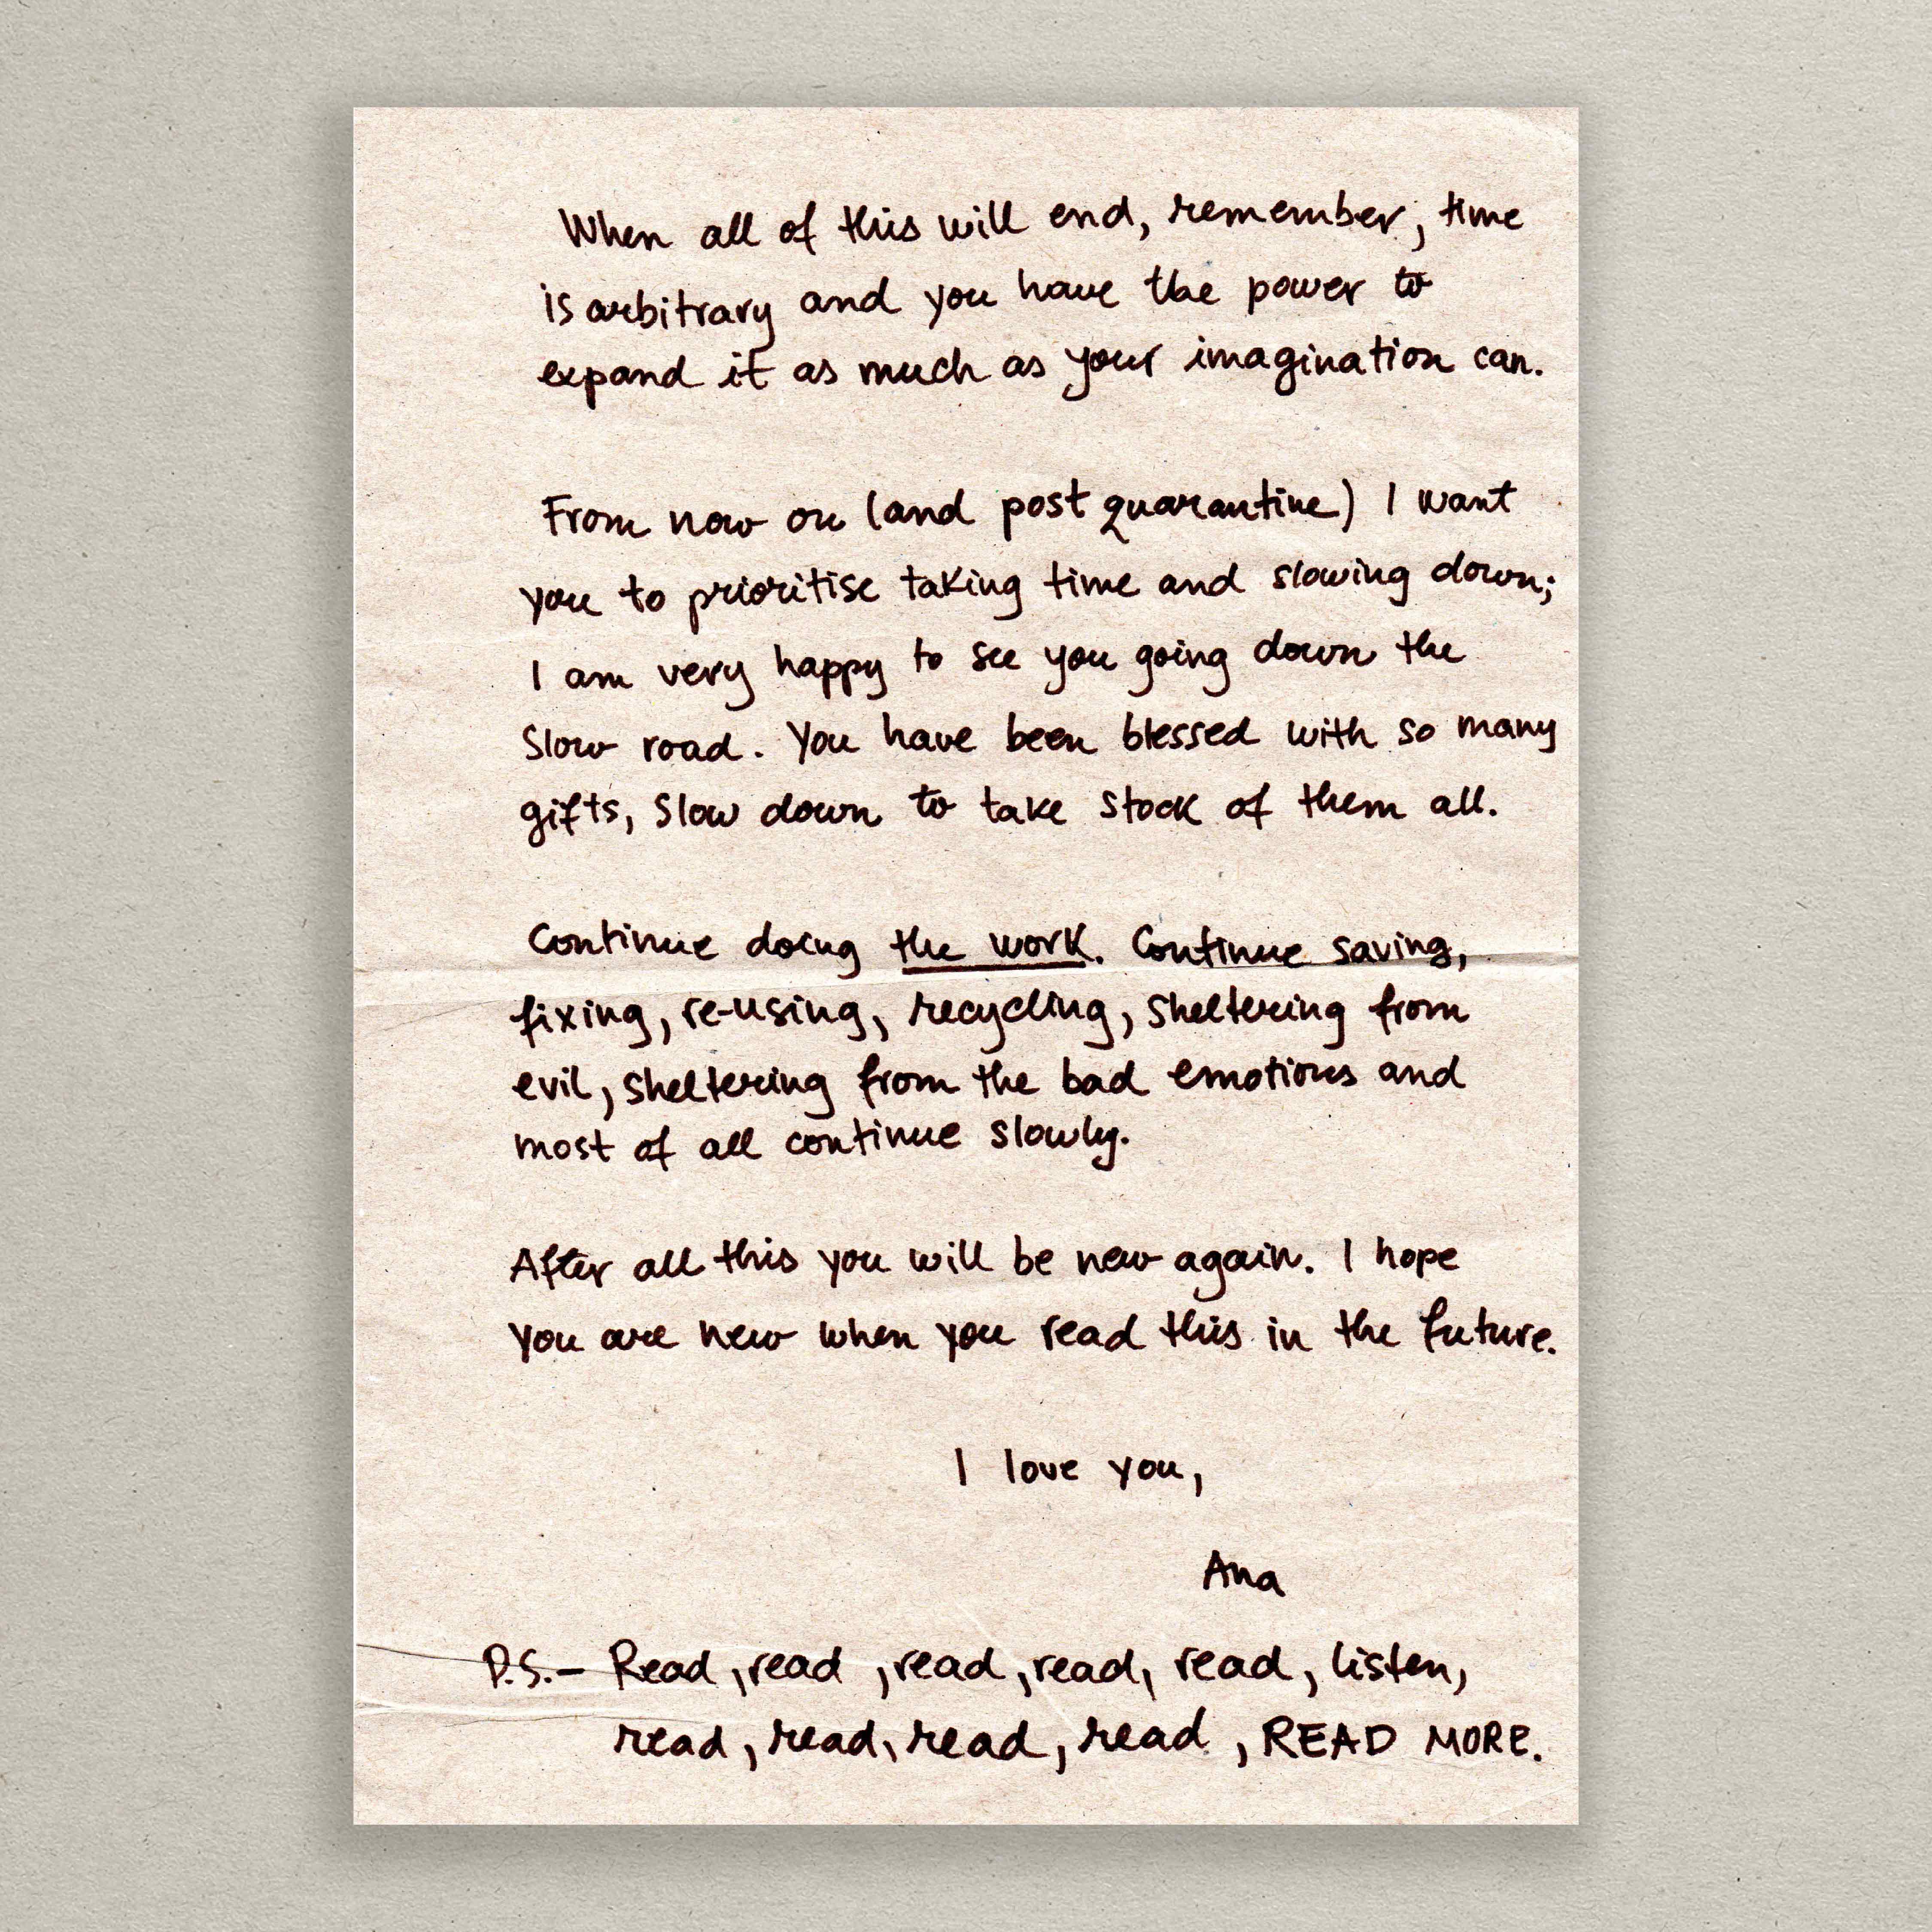 When all of this will end, remember, time
is arbitrary and you have the power to
expand it as much as your imagination can.
From now on (and post quarantine) I want
you to prioritise taking time and slowing down;
I am very happy to see you going down the
slow road. You have been blessed with so many
gifts, slow down to take stock of them all.
Continue doing the work. Continue saving,
fixing, re-using, recycling, sheltering from
evil, sheltering from the bad emotions and
most of all continue slowly.
After all this you will be new again. I hope
you are new when you read this in the future.
I love you,
Ana
P.S.- Read, read, read, read, read, listen,
read, read, read, read, READ MORE.